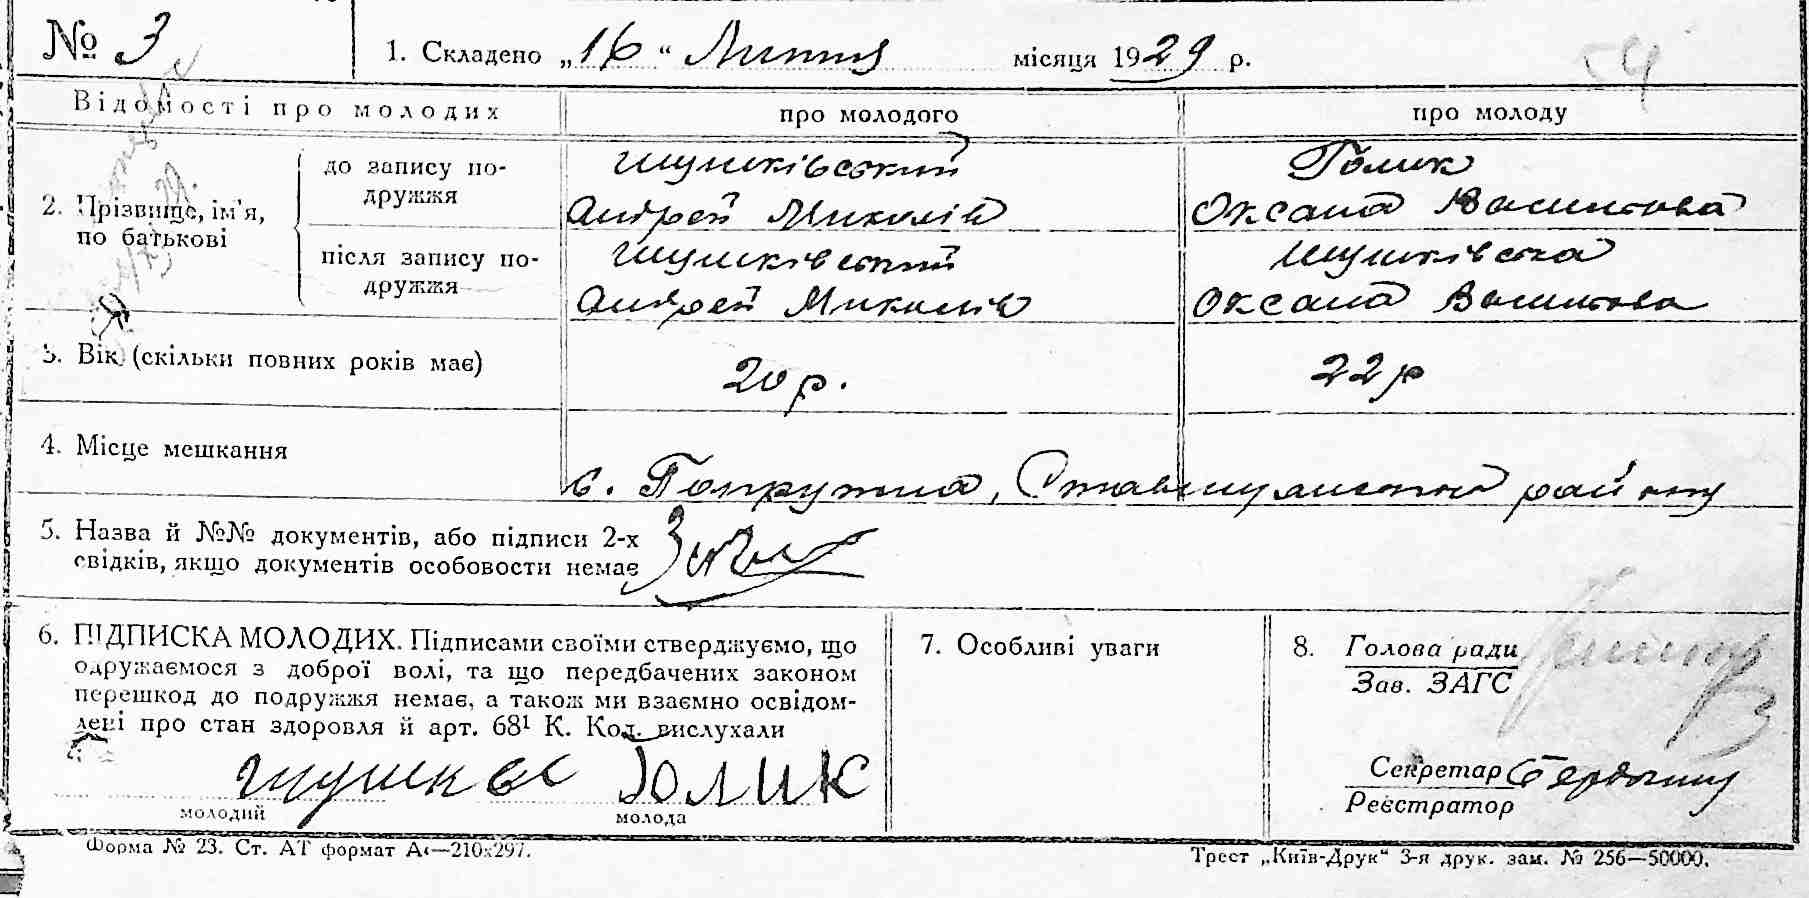 № 3
1. Складено „16“ Липня місяця 1929 р.
54
Відомості про молодих
про молодого
про молоду
2. Прізвище, ім'я, по батькові
до запису подружжя
Шушківський
Андрей Миколів
Голик
Оксана Василова
після запису подружжя
Шушківський
Андрей Миколів
Шушківська
Оксана Василова
3. Вік (скільки повних років має)
20 р.
22 р
4. Місце мешкання
с. Попружна, Ставищанського району
5. Назва й №№ документів, або підписи 2-х
свідків, якщо документів особовости немає
6. ПІДПИСКА МОЛОДИХ. Підписами своїми стверджуємо, що
одружаємося з доброї волі, та що передбачених законом
перешкод до подружжя немає, а також ми взаємно освідом-
лені про стан здоровля й арт. 68¹ К. Код. вислухали
Голик
молодий
молода
7. Особливі уваги
8. Голова ради
Зав. ЗАГС
Секретар
Реєстратор
Форма № 23. Ст. АТ формат А₄—210х297.
Трест „Київ-Друк“ 3-я друк. зам. № 256—50000.